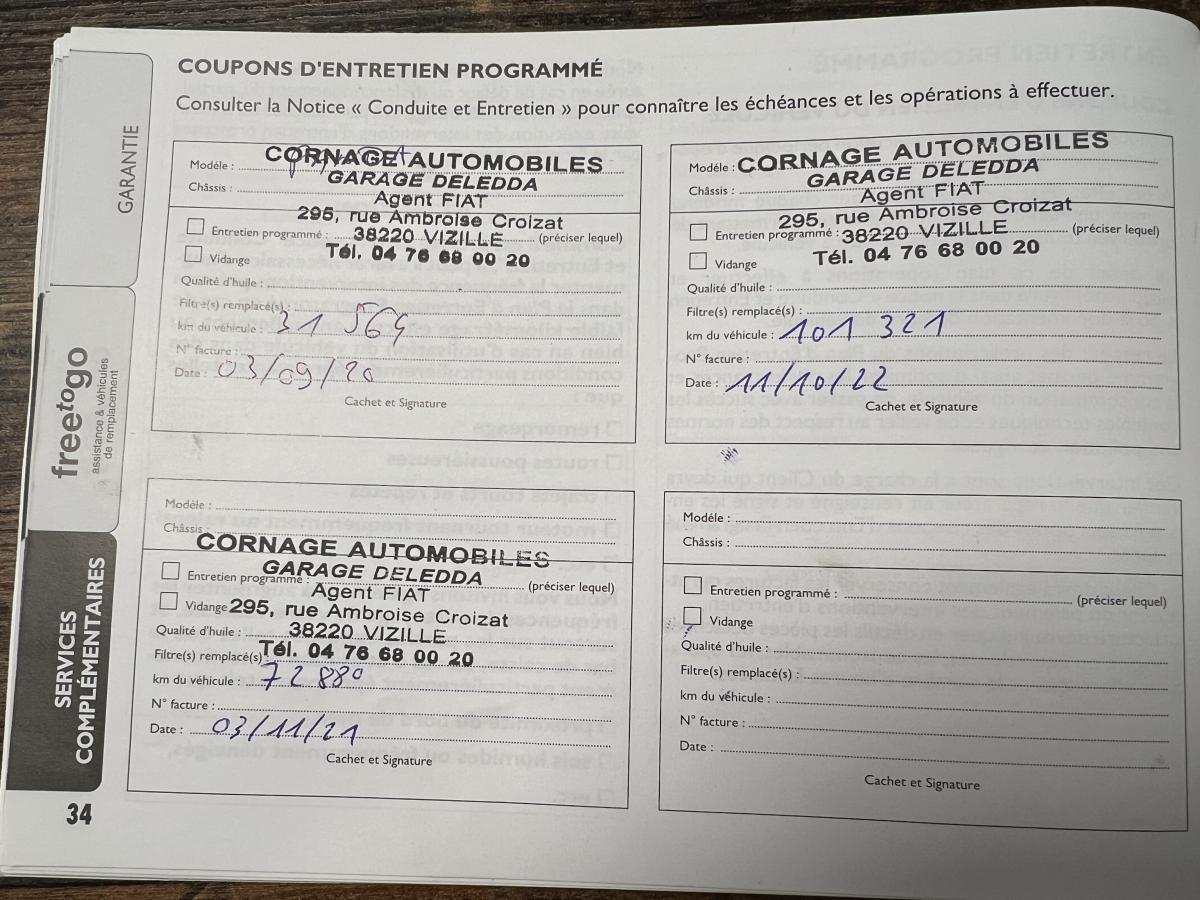 COUPONS D'ENTRETIEN PROGRAMMÉ
Consulter la Notice « Conduite et Entretien » pour connaître les échéances et les opérations à effectuer.
GARANTIE
freetogo
assistance & véhicules
de remplacement
SERVICES
COMPLÉMENTAIRES
34
Modéle :
CORNAGE AUTOMOBILES
GARAGE DELEDDA
Châssis :
Agent FIAT
295, rue Ambroise Croizat
Entretien programmé : 38220 VIZILLE (préciser lequel)
Vidange
Tél. 04 76 68 00 20
Qualité d'huile :
Filtre(s) remplacé(s) :
km du véhicule : 31 569
N° facture :
Date : 03/09/20
Cachet et Signature
Modéle : CORNAGE AUTOMOBILES
GARAGE DELEDDA
Châssis :
Agent FIAT
295, rue Ambroise Croizat
Entretien programmé : 38220 VIZILLE (préciser lequel)
Vidange
Tél. 04 76 68 00 20
Qualité d'huile :
Filtre(s) remplacé(s) :
km du véhicule : 101 321
N° facture :
Date : 11/10/22
Cachet et Signature
Modéle :
Châssis :
CORNAGE AUTOMOBILES
GARAGE DELEDDA
Entretien programmé : (préciser lequel)
Agent FIAT
Vidange 295, rue Ambroise Croizat
Qualité d'huile : 38220 VIZILLE
Filtre(s) remplacé(s) Tél. 04 76 68 00 20
km du véhicule : 72 880
N° facture :
Date : 03/11/21
Cachet et Signature
Modéle :
Châssis :
Entretien programmé : (préciser lequel)
Vidange
Qualité d'huile :
Filtre(s) remplacé(s) :
km du véhicule :
N° facture :
Date :
Cachet et Signature